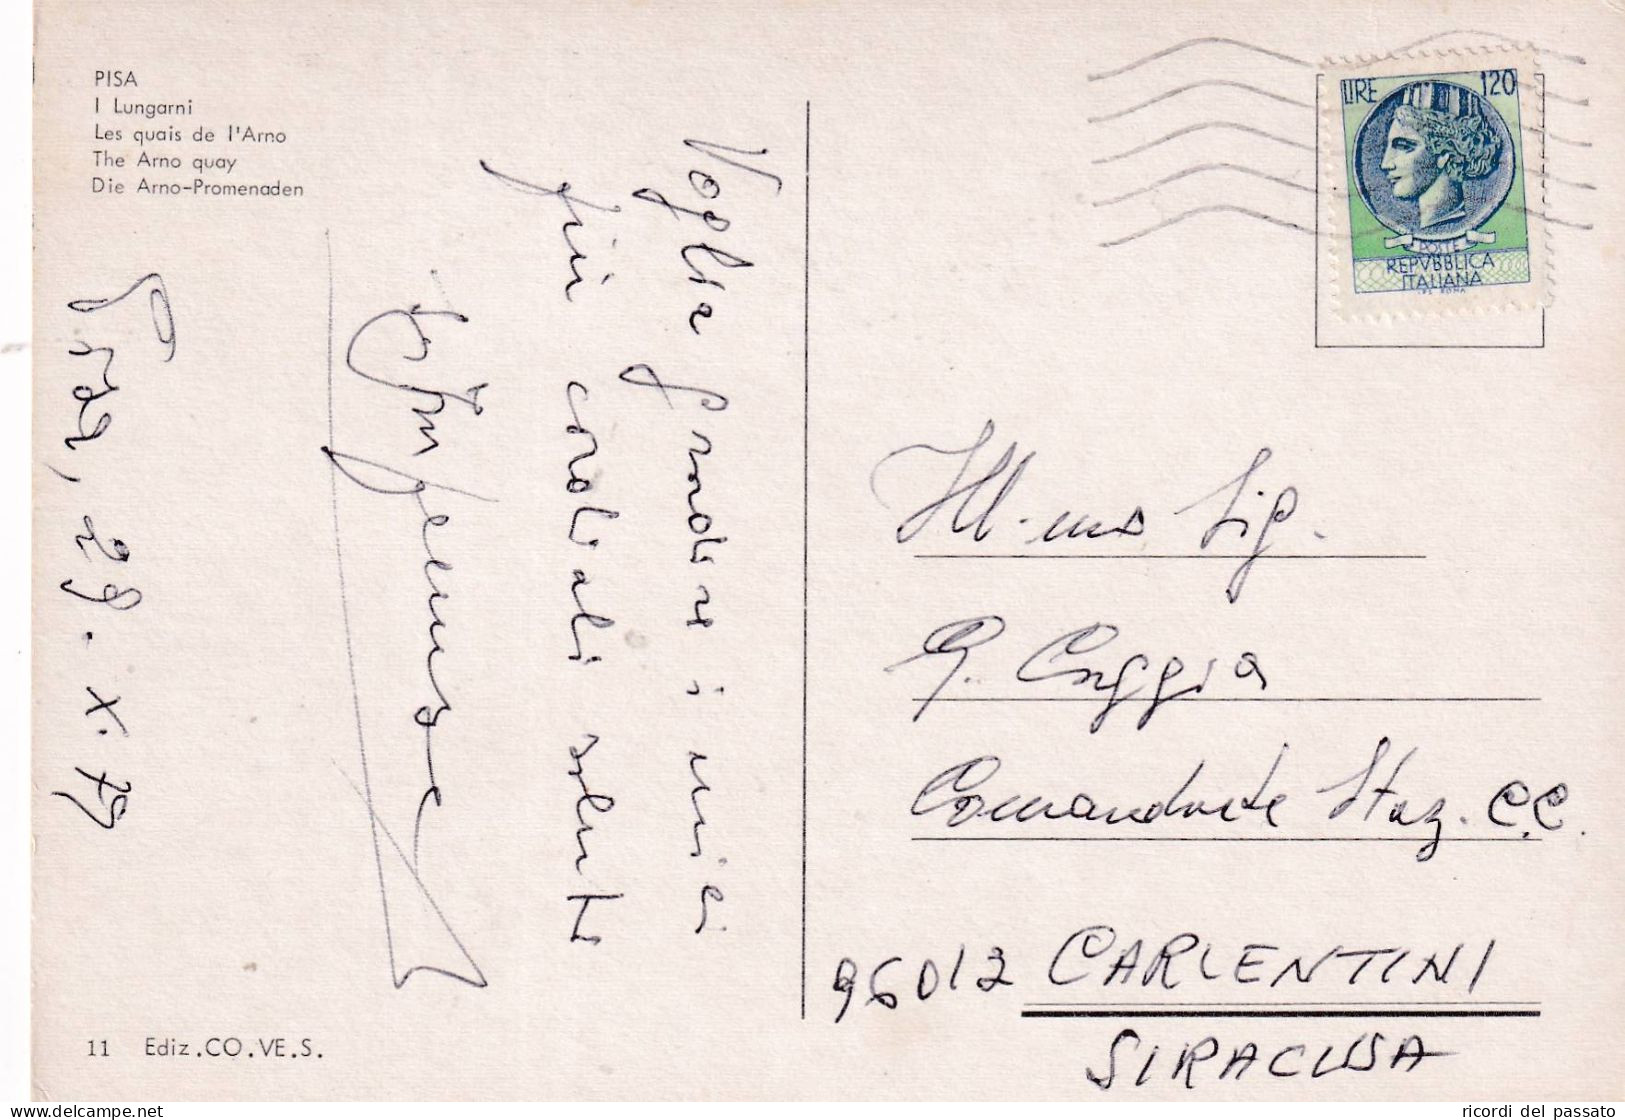 PISA
I Lungarni
Les quais de l'Arno
The Arno quay
Die Arno-Promenaden
LIRE 120
POSTE
REPVBBLICA
ITALIANA
Pisa, 29. X. 79
Voglia gradire i miei
più cordiali saluti
Ill.mo Sig.
G. Cuggia
Comandante Staz. C.C.
96013 CARLENTINI
SIRACUSA
11 Ediz.CO.VE.S.
delcampe.net
ricordi del passato